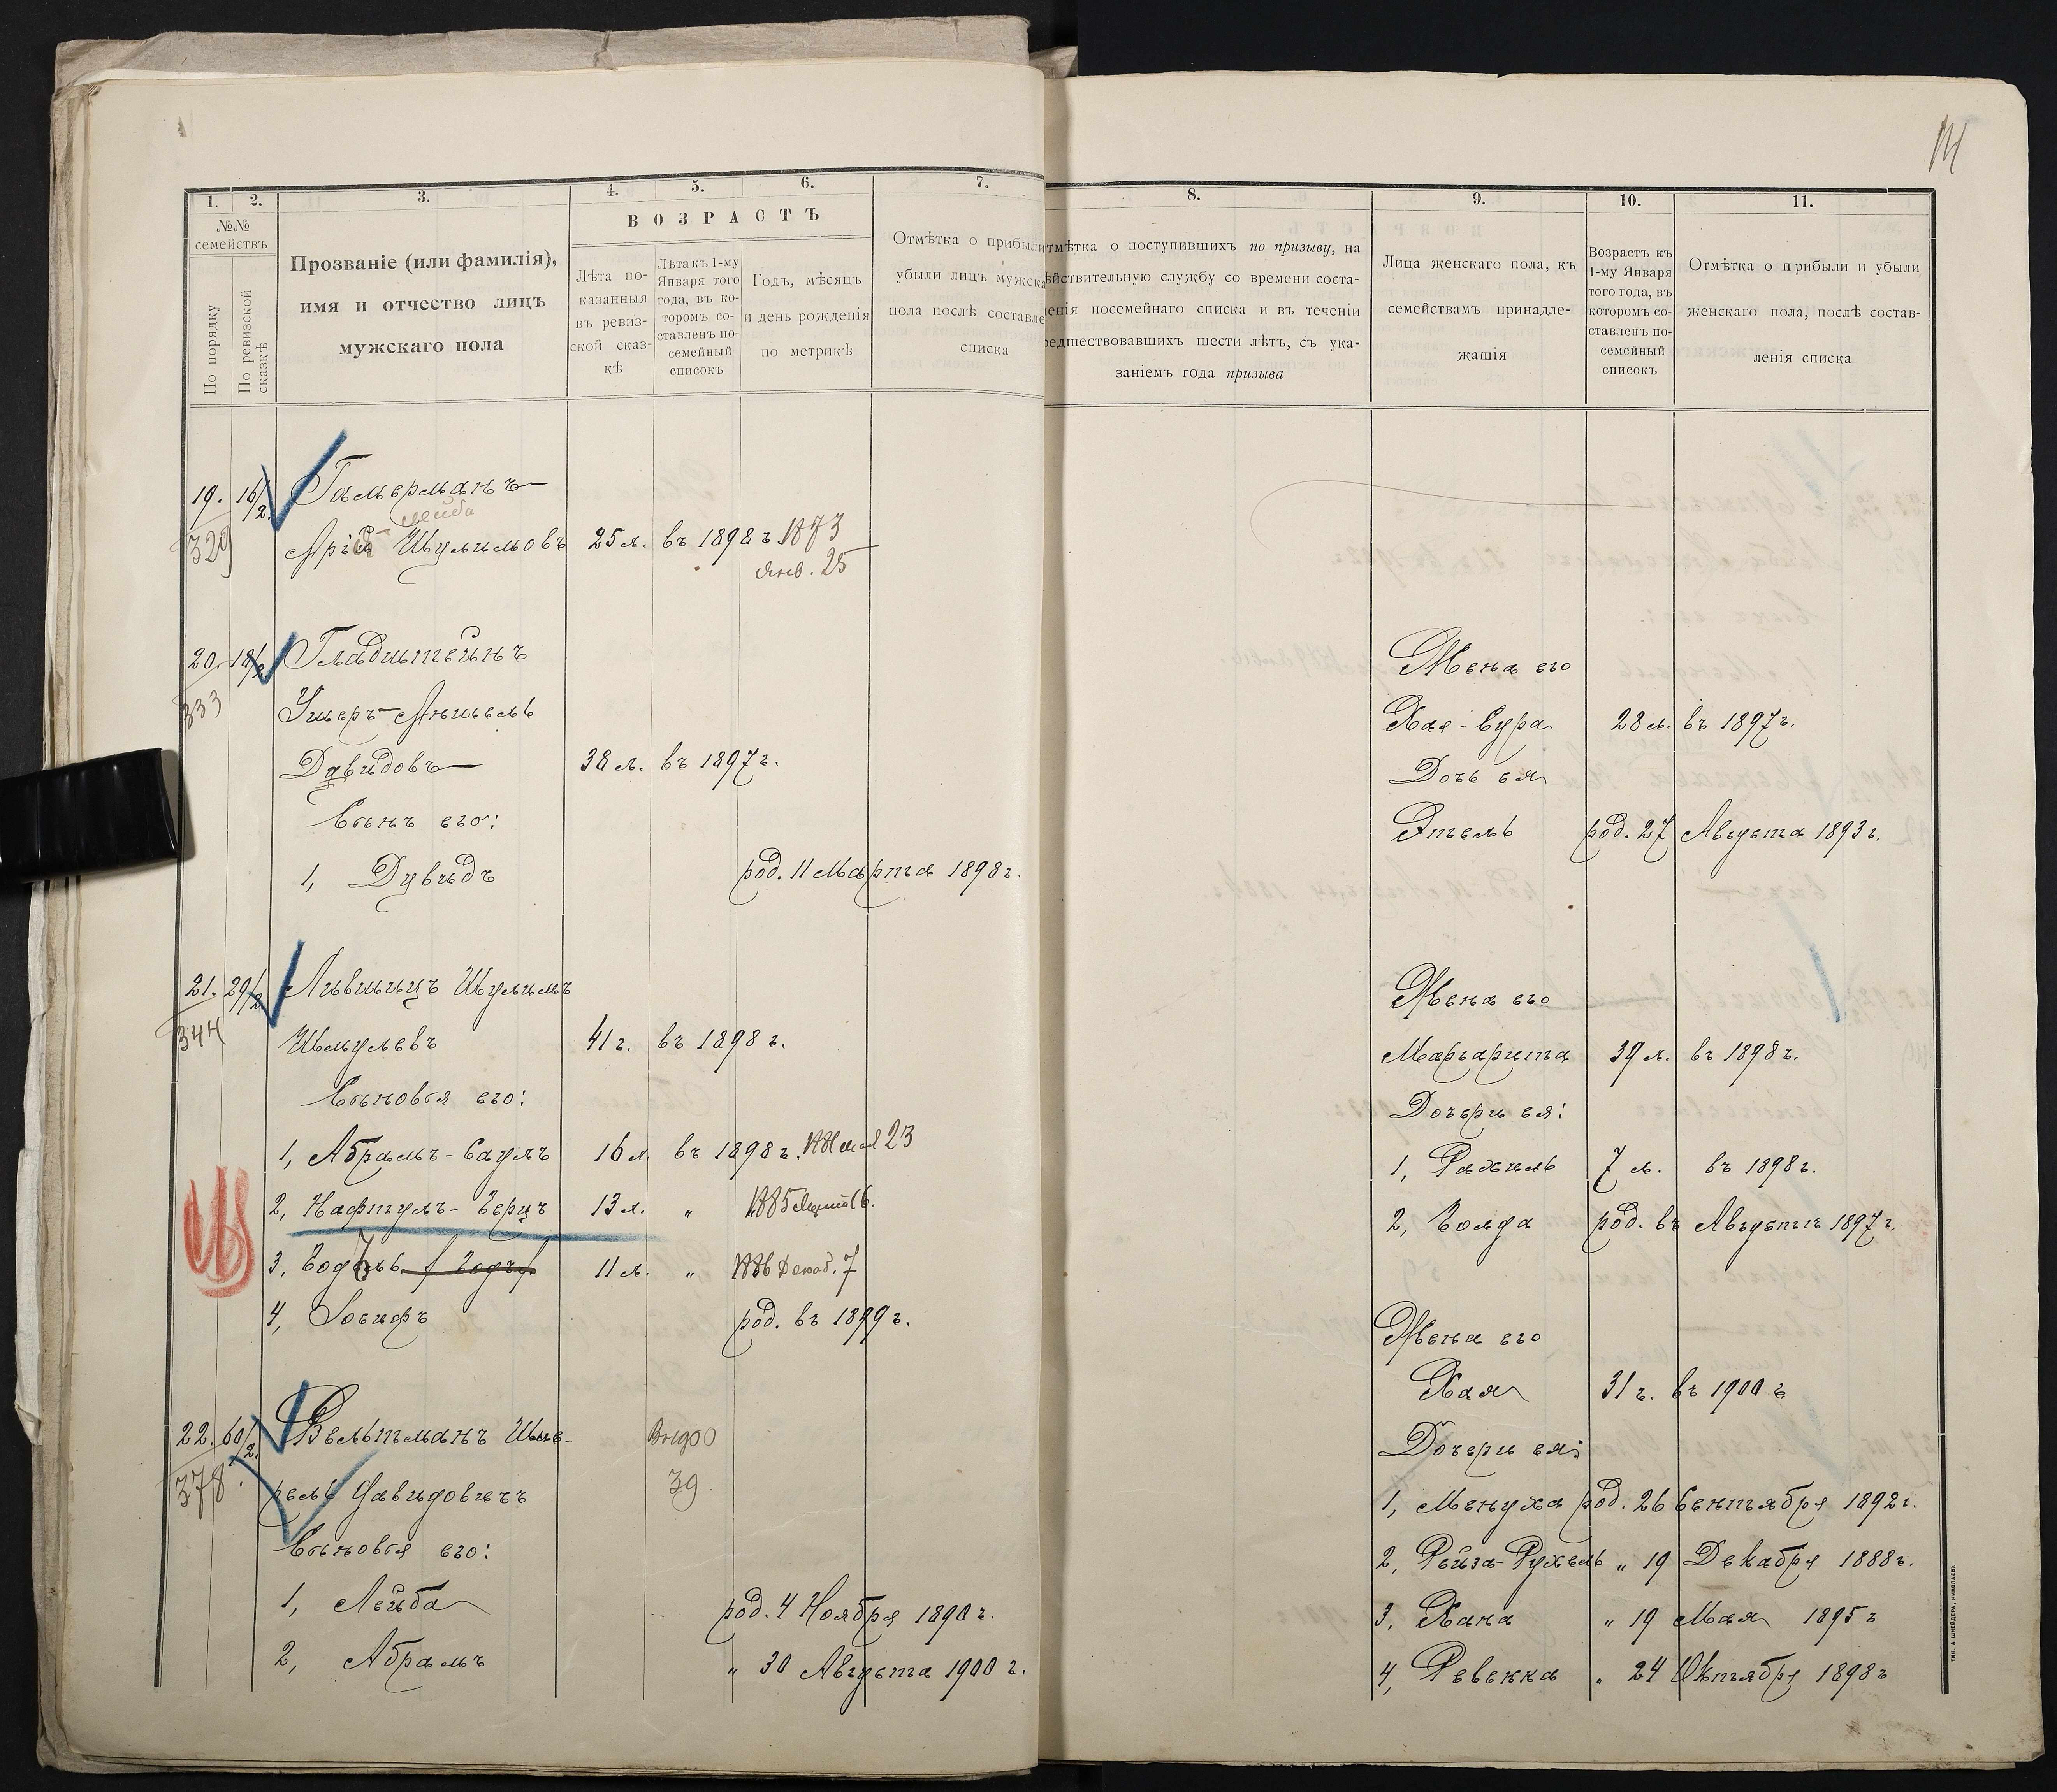 1.
2.
3.
4.
5.
6.
7.
№№
семействъ
По порядку
По ревизской сказкѣ
Прозваніе (или фамилія),
имя и отчество лицъ
мужскаго пола
ВОЗРАСТЪ
Лѣта по-
казанныя
въ ревиз-
ской сказ-
кѣ
Лѣта къ 1-му
Января того
года, въ ко-
торомъ со-
ставленъ по-
семейный
списокъ
Годъ, мѣсяцъ
и день рожденія
по метрикѣ
Отмѣтка о прибыли
убыли лицъ мужска
пола послѣ составле
списка
19. 16/2
329
Гамерманъ
Лейба
Шулимовъ 25 л. въ 1898 г. 1873
Янв. 25
20. 18/2
333
Гладштейнъ
Ушеръ-Аншель
Давидовъ 38 л. въ 1897 г.
Сынъ его:
1, Давидъ род. 11 Марта 1898 г.
21. 29/2
344
Лившицъ Шулимъ
Шмулевъ 41 г. въ 1898 г.
Сыновья его:
1, Абрамъ-Саулъ 16 л. въ 1898 г. 1881 мая 23
2, Нафтулъ-Герцъ 13 л. " 1885 6.
3, 11 л. " 1886 Декаб. 7
4, Іосифъ род. въ 1899 г.
22. 60/2.
378
Вельтманъ Шме-
рель Давидовичъ
Въ 1900
39
Сыновья его:
1, Лейба род. 4 Ноября 1890 г.
2, Абрамъ " 30 Августа 1900 г.
8.
9.
10.
11.
тмѣтка о поступившихъ по призыву, на
ѣйствительную службу со времени соста-
енія посемейнаго списка и въ теченіи
редшествовавшихъ шести лѣтъ, съ ука-
заніемъ года призыва
Лица женскаго пола, къ
семействамъ принадле-
жашія
Возрастъ къ
1-му Января
того года, въ
которомъ со-
ставленъ по-
семейный
списокъ
Отмѣтка о прибыли и убыли
женскаго пола, послѣ состав-
ленія списка
Жена его
Хая-Сура 28 л. въ 1897 г.
Дочь ея
Этель род. 27 Августа 1893 г.
Жена его
Маргарита 39 л. въ 1898 г.
Дочери ея:
1, Рахиль 7 л. въ 1898 г.
2, Голда род. въ Августѣ 1897 г.
Жена его
Хая 31 г. въ 1900 г
Дочери ея:
1, Менуха род. 26 Сентября 1892 г.
2, Рейза-Рухель " 19 Декабря 1888 г.
3, Хана " 19 Мая 1895 г
4, Ревекка " 24 Октября 1898 г
ТИП. А ШНЕЙДЕРА, НИКОЛАЕВЪ